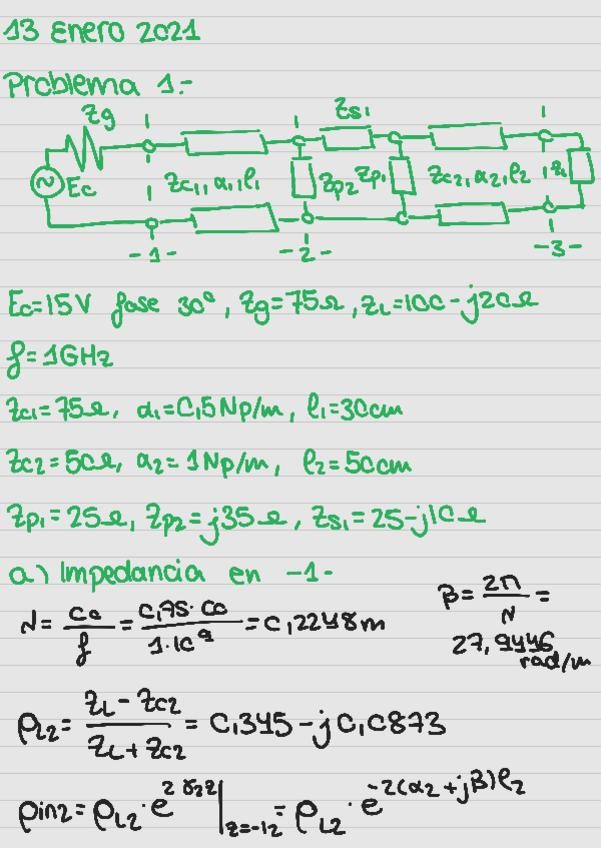 13 Enero 2021
Problema 1.-
Zg Zs1
Ec Zc1, α1, l1 Zp2 Zp1 Zc2, α2, l2 ZL
-1- -2- -3-
Ec=15V fase 30º, Zg=75Ω, ZL=100-j20Ω
f=1GHz
Zc1=75Ω, α1=0,5Np/m, l1=30cm
Zc2=50Ω, α2=1Np/m, l2=50cm
Zp1=25Ω, Zp2=j35Ω, Zs1=25-j10Ω
a) Impedancia en -1-
λ = c0/f = 0,75·c0/1·10^9 = 0,2248m
β = 2π/λ =
27,9446 rad/m
ρL2 = (ZL - Zc2)/(ZL + Zc2) = 0,345-j0,0873
ρin2 = ρL2 · e^(2γ2z)|z=-l2 = ρL2 · e^(-2(α2+jβ)l2)